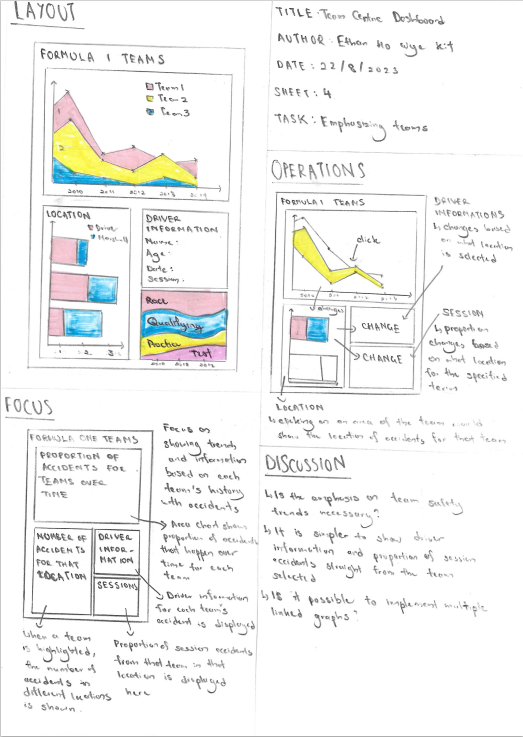 LAYOUT
FORMULA 1 TEAMS
Team 1
Team 2
Team 3
1
2
2010 2011 2012 2013 2014
LOCATION
Driver
DRIVER
INFORMATION
Name:
Age:
Date:
Session:
Race
Qualifying
Practice
Test
TITLE: Team Centric Dashboard
AUTHOR: Ethan Ho Wye Kit
DATE: 22/8/2023
SHEET: 4
TASK: Emphasizing teams
OPERATIONS
FORMULA 1 TEAMS
click
changes
CHANGE
CHANGE
DRIVER
INFORMATIONS
↳ changes based
on what location
is selected
SESSION
↳ proportion
changes based
on what location
for the specified
teams
LOCATION
↳ clicking on an area of the team would
show the location of accidents for that team
FOCUS
FORMULA ONE TEAMS
PROPORTION OF
ACCIDENTS FOR
TEAMS OVER
TIME
NUMBER OF
ACCIDENTS
FOR THAT
LOCATION
DRIVER
INFOR-
MATION
SESSIONS
Focus on
showing trends
and information
based on each
team's history
with accidents
Area chart shows
proportion of accidents
that happen over
time for each
team
Driver information
for each team's
accident is displayed
When a team
is highlighted,
the number of
accidents in
different locations
is shown.
Proportion of session accidents
from that team in that
location is displayed
here
DISCUSSION
↳ Is the emphasis on team safety
trends necessary?
↳ It is simpler to show driver
information and proportion of session
accidents straight from the team
selected
↳ Is it possible to implement multiple
linked graphs?